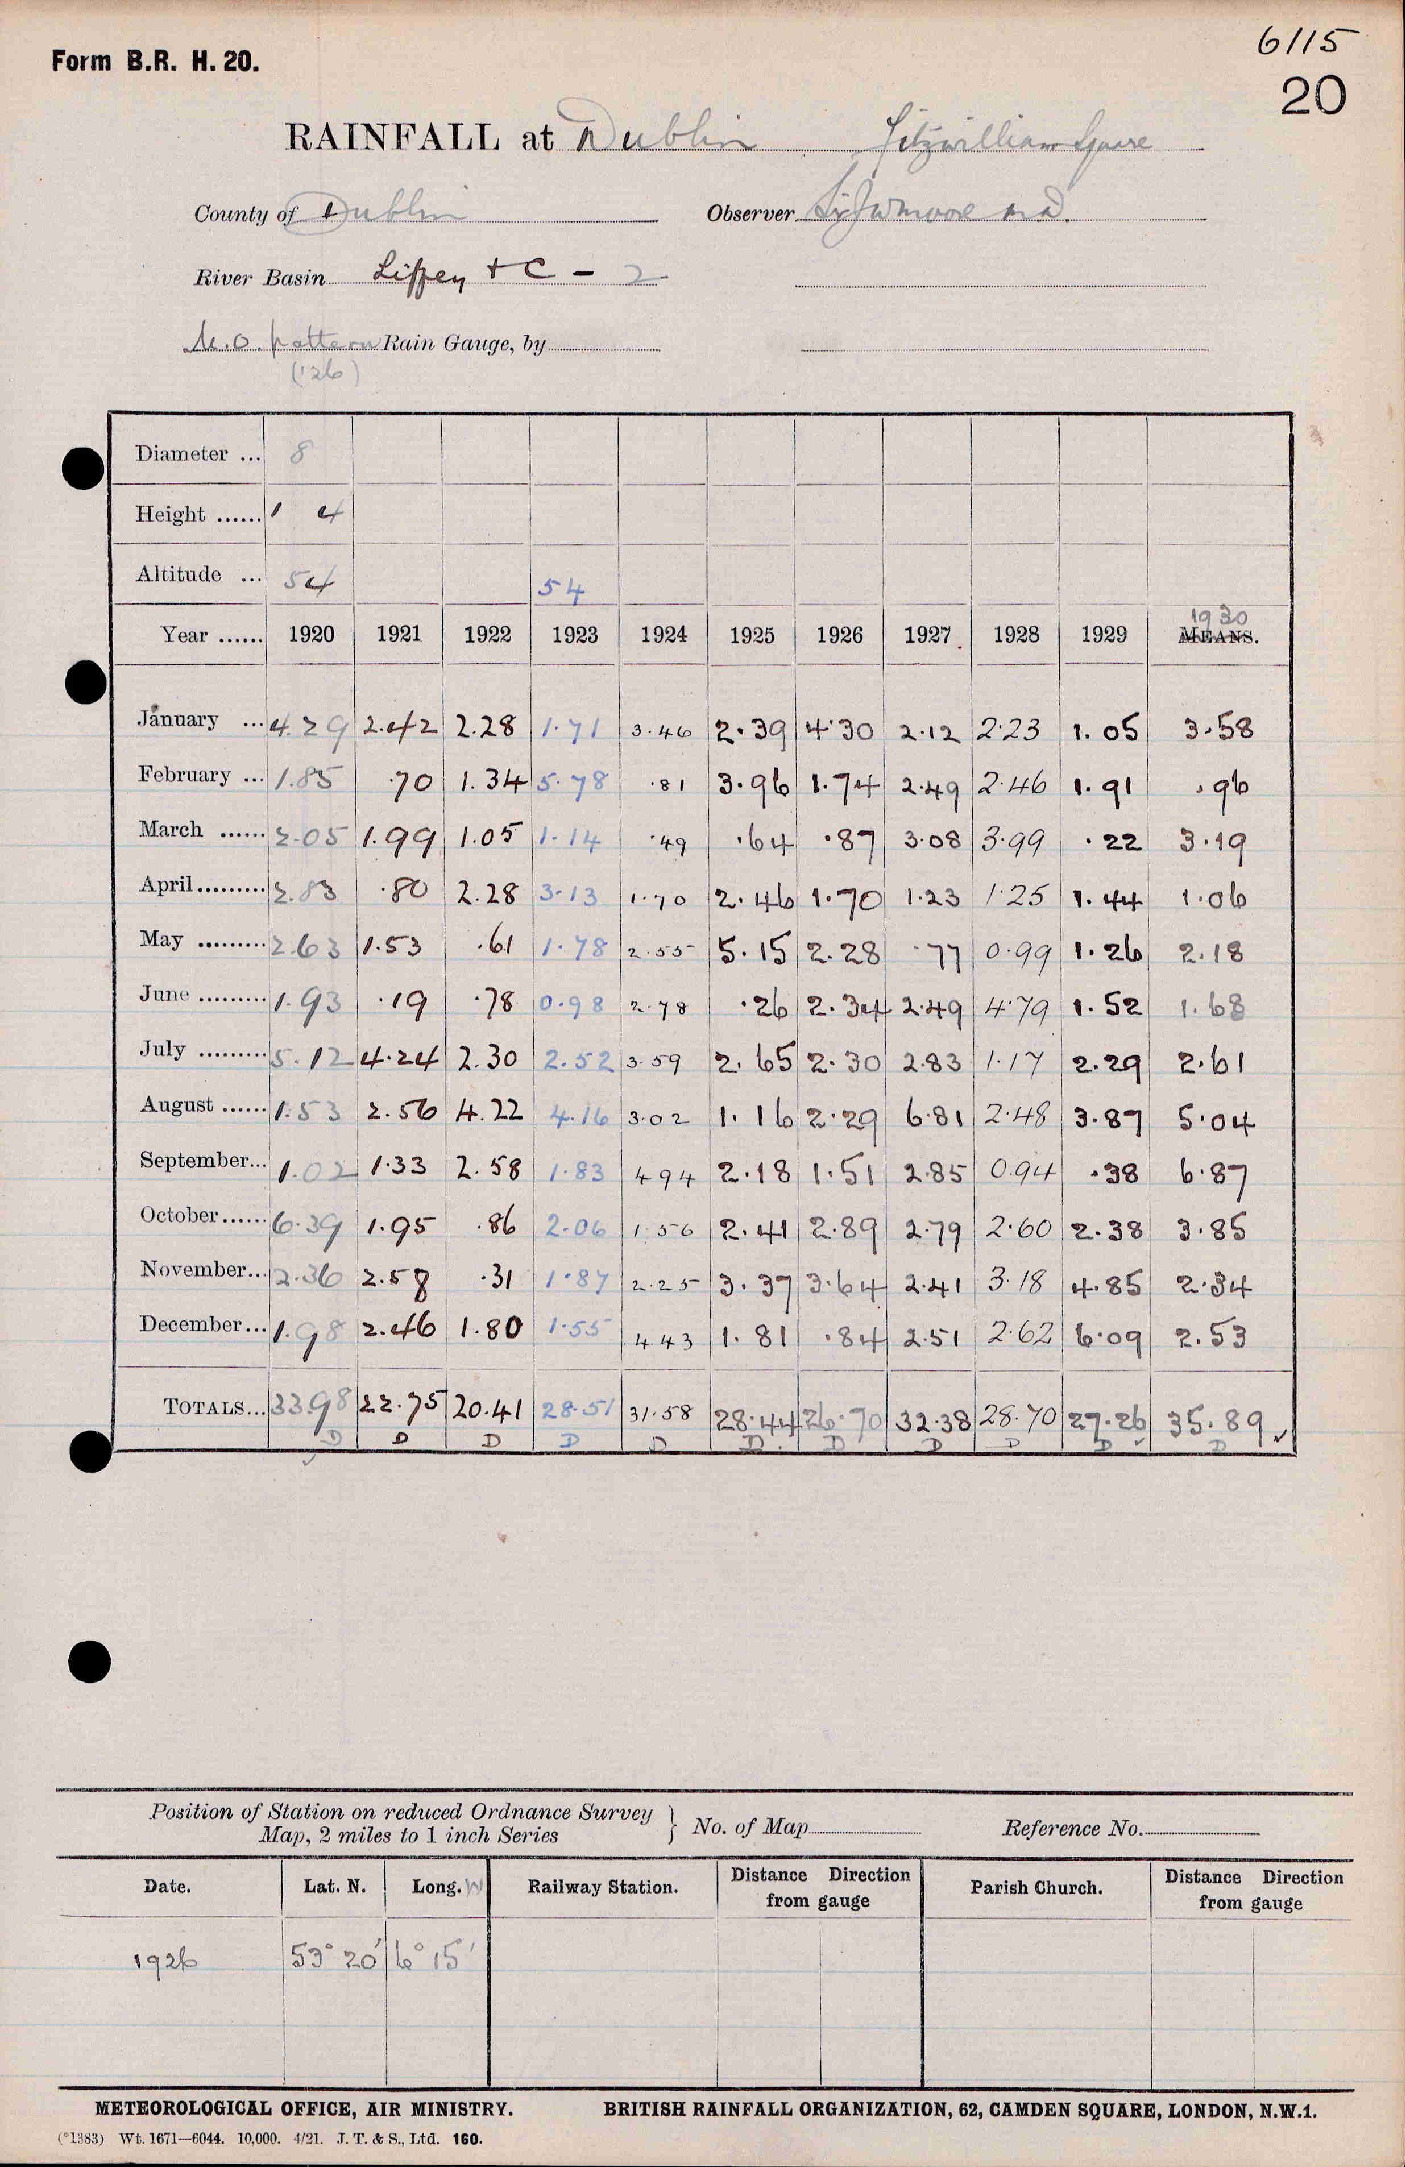 Form B.R. H. 20.
6115
20
RAINFALL at Dublin Fitzwilliam Square
County of Dublin Observer Sir J W Moore M.D.
River Basin Liffey + C - 2
M.O. pattern Rain Gauge, by
('26)
Diameter ... 8
Height ...... 1 4
Altitude ... 54 54
1930
Year ...... 1920 1921 1922 1923 1924 1925 1926 1927 1928 1929 MEANS.
January ... 4.29 2.42 2.28 1.71 3.46 2.39 4.30 2.12 2.23 1.05 3.58
February ... 1.85 .70 1.34 5.78 .81 3.96 1.74 2.49 2.46 1.91 .96
March ...... 2.05 1.99 1.05 1.14 .49 .64 .87 3.08 3.99 .22 3.19
April......... 2.83 .80 2.28 3.13 1.70 2.46 1.70 1.23 1.25 1.44 1.06
May ......... 2.63 1.53 .61 1.78 2.55 5.15 2.28 .77 0.99 1.26 2.18
June ......... 1.93 .19 .78 0.98 2.78 .26 2.34 2.49 4.79 1.52 1.68
July ......... 5.12 4.24 2.30 2.52 3.59 2.65 2.30 2.83 1.17 2.29 2.61
August ...... 1.53 2.56 4.22 4.16 3.02 1.16 2.29 6.81 2.48 3.87 5.04
September... 1.02 1.33 2.58 1.83 4 94 2.18 1.51 2.85 0.94 .38 6.87
October...... 6.39 1.95 .86 2.06 1.56 2.41 2.89 2.79 2.60 2.38 3.85
November... 2.36 2.58 .31 1.87 2.25 3.37 3.64 2.41 3.18 4.85 2.34
December... 1.98 2.46 1.80 1.55 4 43 1.81 .84 2.51 2.62 6.09 2.53
TOTALS... 33.98 22.75 20.41 28.51 31.58 28.44 26.70 32.38 28.70 27.26 35.89
D D D D D D D D D D D
Position of Station on reduced Ordnance Survey
Map, 2 miles to 1 inch Series } No. of Map Reference No.
Date. Lat. N. Long. W Railway Station. Distance Direction from gauge Parish Church. Distance Direction from gauge
1926 53° 20' 6° 15'
METEOROLOGICAL OFFICE, AIR MINISTRY. BRITISH RAINFALL ORGANIZATION, 62, CAMDEN SQUARE, LONDON, N.W.1.
(*1383) Wt. 1671—6044. 10,000. 4/21. J. T. & S., Ltd. 160.